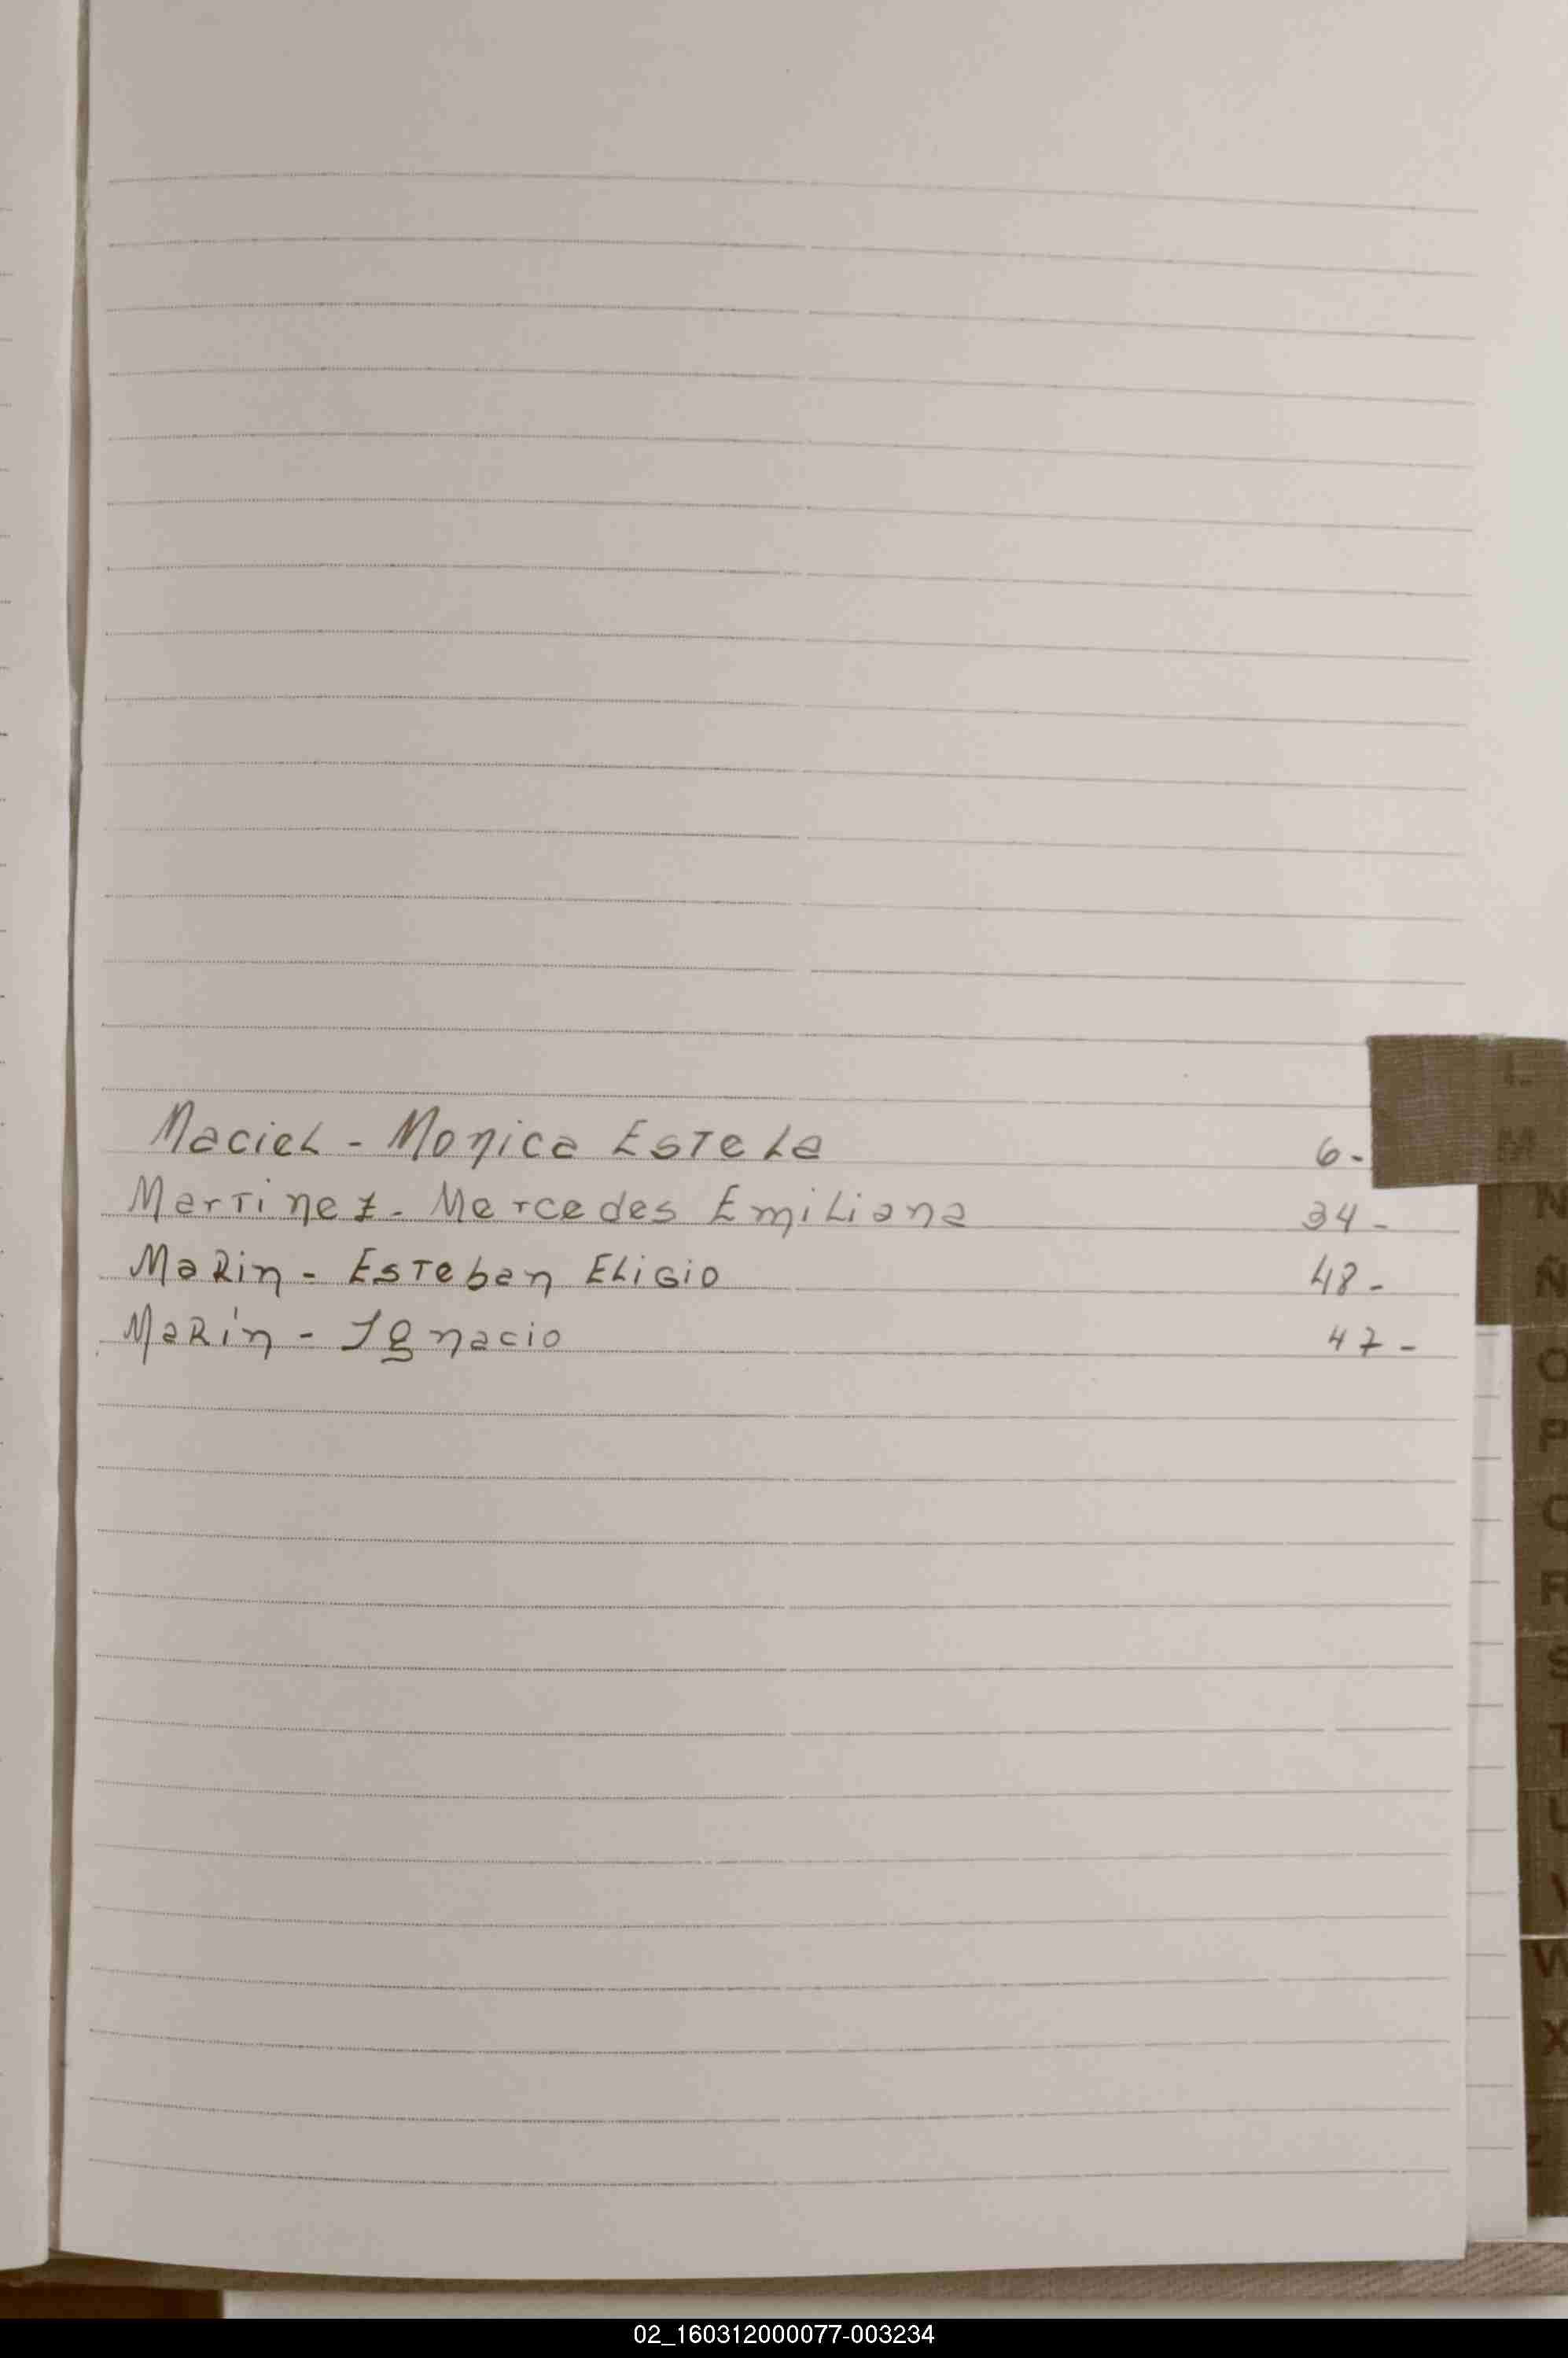 Maciel - Monica Estela 6-
Martinez - Mercedes Emiliana 34-
Marin - Esteban Eligio 48-
Marín - Ignacio 47-
L
M
N
Ñ
O
P
Q
R
S
T
U
V
W
X
Z
02_160312000077-003234